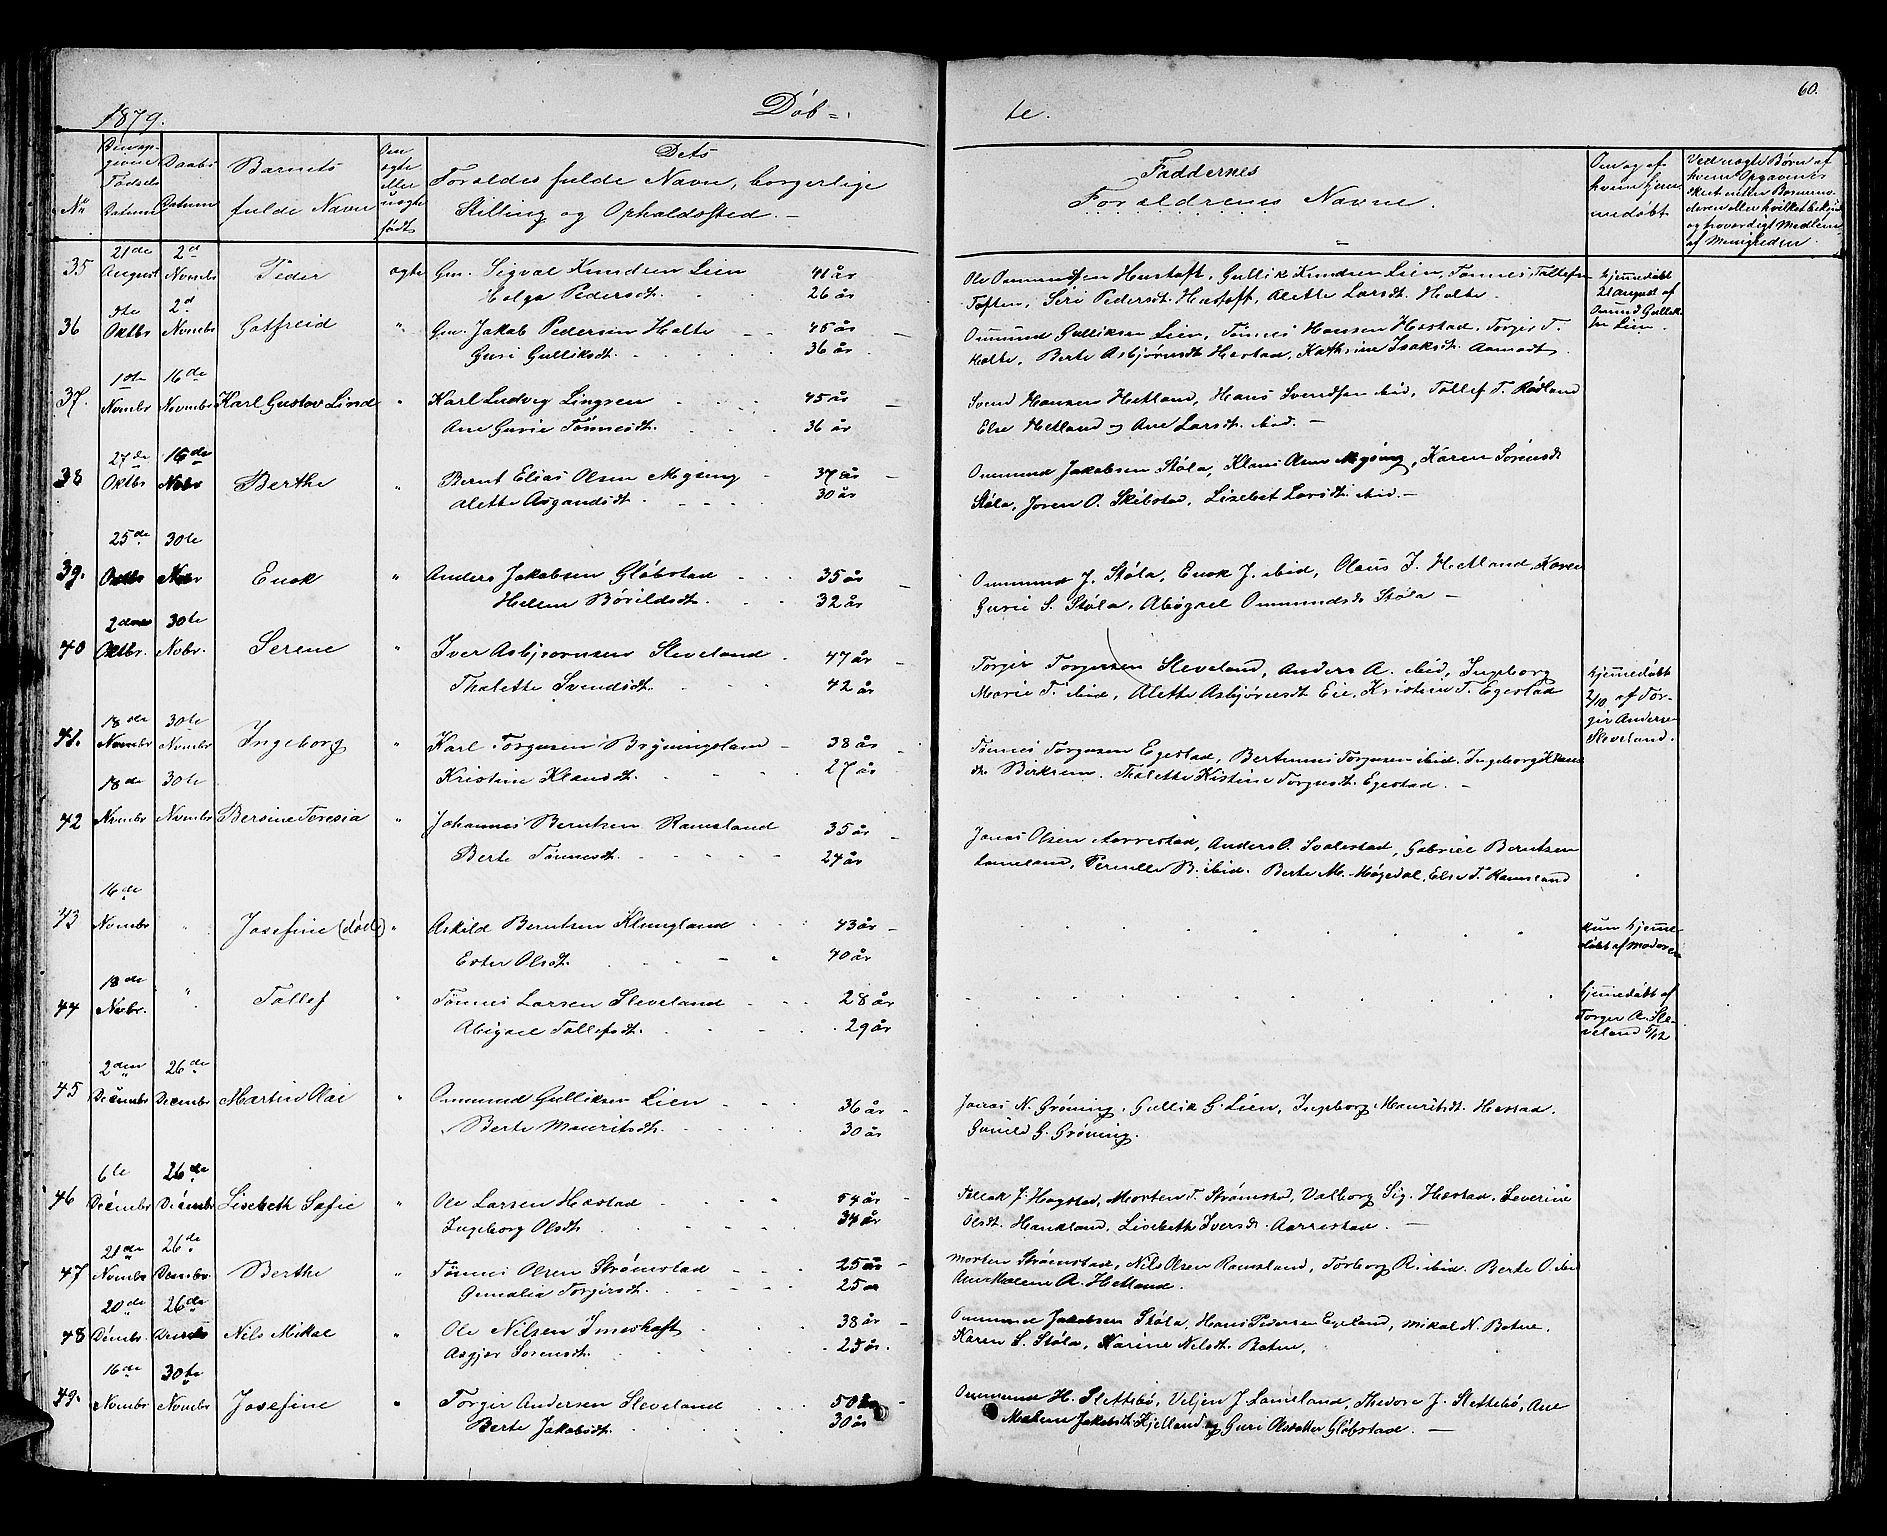 60.
1879. Døb=te.
No
Den op-
givne
Fødsels
Datum
Daabs
Datum
Barnets
fulde Navn
Om
ægte
eller
uægte
født
Dets
Forældes fulde Navn, borgerlige
Stilling og Opholdssted.
Faddernes
Forældrenes Navne.
Om og af
hvem hjem
medøbt
Ved uægte Børn af
hvem Opgaven er
skeet enten Barnemo-
deren eller hvilket bekjendt
og troværdigt Medlem
af Menigheden.
35 21de August 2d Novembr Peder ægte Gm. Sigval Knudsen Lien 41 år
Helga Pedersdt. 26 år
Ole Ommundsen Hustoft, Gullik Knudsen Lien, Tønnes Tollefsen
Toften, Seri Pedersdt. Hustoft, Alette Larsdt. Holte.
hjemmedøbt
21 august af
Omund Gullik-
sen Lien.
36 9te Oktbr 2d Novembr Gotfreid " Gm. Jakob Pedersen Holte 45 år
Guri Gulliksdt. 36 år
Ommund Gulliksen Lien, Tønnes Hansen Hæstad, Torgir T.
Holte, Berte Asbjørnsdt Hestad, Kathrine Isaksdt. Aamodt.
37. 1ste Novmbr 16de Novembr Karl Gustav Lind " Karl Ludvig Lingren 45 år
Ane Gurie Tønnesdt. 36 år
Svend Hansen Hetland, Hans Svendsen ibid, Tollef T. Rødland
Else Hetland og Ane Larsdt. ibid.
38 27de Oktbr 16de Nvbr Berthe " Bernt Elias Olsen Mysing 37 år
Alette Asgaudsdt 30 år
Ommund Jakobsen Støla, Klaus Olsen Mysing, Karen Sørensdt
Støla, Joren O. Skibstad, Lisebet Larsdt. ibid.
39. 25de Oktbr 30te Nvbr Enok " Anders Jakobsen Gløbstad 35 år
Hellen Bårildsdt. 32 år
Ommund J. Støla, Enok J. ibid, Olaus J. Hetland, Karen
Gurie S. Støla, Abigael Ommundsdt Støla
40 2den Oktbr. 30te Nvbr. Serene " Iver Asbjørnsen Sleveland 47 år
Thalette Svendsdt. 42 år
Torgir Torgersen Sleveland, Anders A. ibid, Ingeborg
Marie T. ibid, Alette Asbjørnsdt Eie, Kristine T. Egestad
hjemmedøbt
2/10 af Tor-
gir Anderse
Sleveland.
41. 18de Novmbr 30te Novembr Ingeborg " Karl Torgersen Bryningsland 38 år
Kristine Klausdt. 27 år
Tønnes Torgersen Egestad, Bertinus Torgersen ibid. Ingeborg Klaus
dt. Birkrem. Thalette Kistine Torgersdt. Egestad.
42 18de Nvmbr 30te Novmbr Bersine Teresia " Johannes Berntsen Ramsland 35 år
Berte Tønnesdt. 24 år
Jonas Olsen Aarrestad, Anders O. Svalestad, Gabriel Berntsen
Lameland, Pernille B. ibid. Berte M. Møgedal, Else T. Ramsland
43 16de Nvmbr " Josefine (død) " Askild Berntsen Klungland 43 år
Ester Olsdt. 40 år
kun hjemme-
døbt af moderen
44 18de Nvbr. " Tollef " Tønnes Larsen Sleveland 28 år
Abigael Tollefsdt. 29 år
hjemmedøbt af
Torger A. Sle-
veland 5/12
45 2den Decembr 26de Decembr Martin Olai " Ommund Gulliksen Lien 36 år
Berte Mauritsdt. 30 år
Jonas N. Grøning, Gullik G. Lien, Ingeborg Mauritsdt. Hestad.
Gunild G. Grøning.
46 6te Decembr 26de Decembr Lisebeth Sofie " Ole Larsen Hæstad 54 år
Ingeborg Olsdt. 34 år
Tollak J. Hogstad, Morten T. Strømstad, Valborg Sig. Hæstad. Severine
Olsdt. Haukland, Lisebeth Iversdt. Aarrestad.
47 21de Novmbr 26de Dembr. Berthe " Tønnes Olsen Strømstad 25 år
Ommalia Torgirsdt. 25 år
Morten Strømstad, Nils Olsen Ramsland, Torborg R. ibid. Berte O. ibi
Ane Malene A. Hetland.
48 20de Dembr. 26de Dembr Nils Mikal " Ole Nilsen Imeshaft 38 år
Asgjer Sørensdt. 25 år.
Ommund Jakobsen Støla, Hans Pedersen Egeland, Mikal N. Botne.
Karen S. Støla, Karine Nilsdt. Botne,
49. 16de Novmbr 30te Novmbr Josefine " Torgir Andersen Sleveland 50 år
Berte Jakobsdt. 30 år
Ommund H. Slettebø, Veljen J. Lameland, Thedore J. Slettebø, Ane
Malene Jakobsdt. Kjelland og Guri Olsdatter Gløbstad.